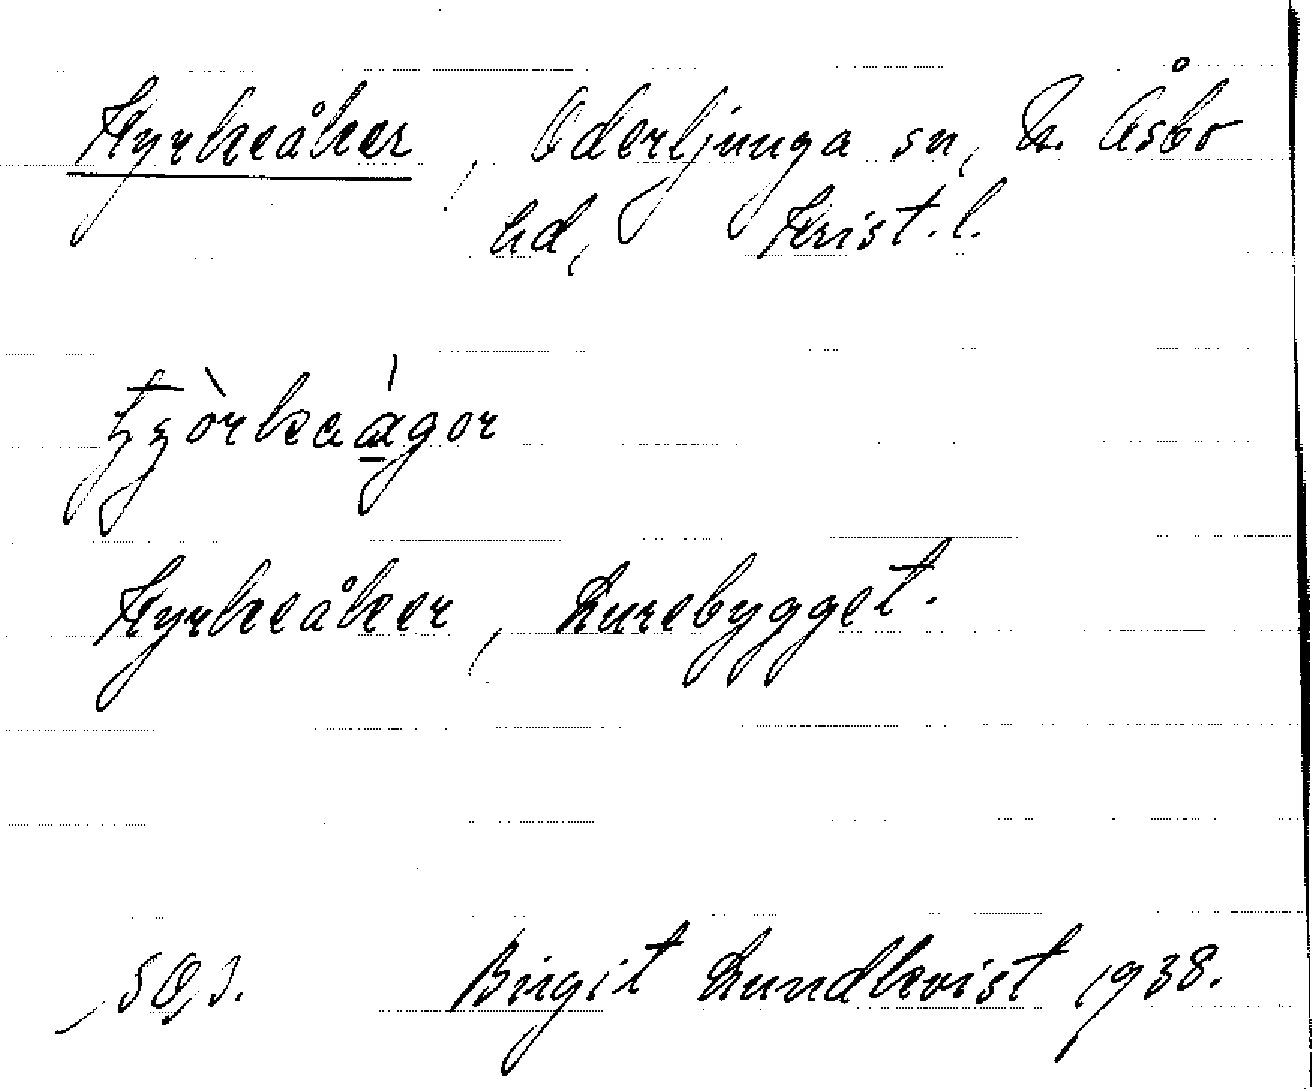 Kyrkeåker, Oderljunga sn, N. Åsbo
hd, Krist. l.
Kyrkeåker, Lurebygget.
Birgit Lundkvist 1938.